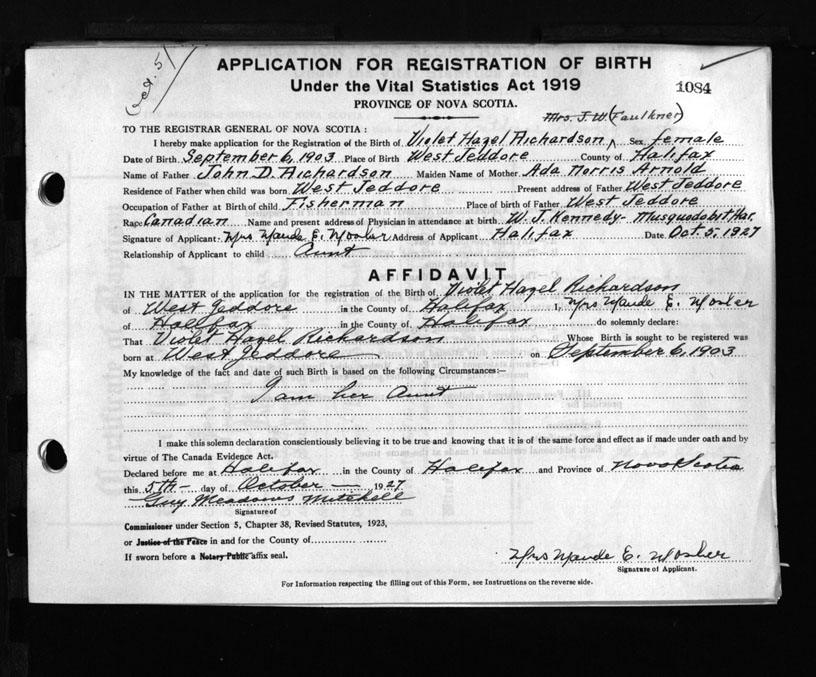 Oct. 5/
APPLICATION FOR REGISTRATION OF BIRTH
Under the Vital Statistics Act 1919
1084
PROVINCE OF NOVA SCOTIA.
Mrs. J. W. (Faulkner)
TO THE REGISTRAR GENERAL OF NOVA SCOTIA:
I hereby make application for the Registration of the Birth of Violet Hazel Richardson Sex female
Date of Birth September 6, 1903 Place of Birth West Jeddore County of Halifax
Name of Father John D. Richardson Maiden Name of Mother Ada Norris Arnold
Residence of Father when child was born West Jeddore Present address of Father West Jeddore
Occupation of Father at Birth of child Fisherman Place of birth of Father West Jeddore
Race Canadian Name and present address of Physician in attendance at birth W. J. Kennedy - Musquodobit Har.
Signature of Applicant Mrs Maude E. Mosher Address of Applicant Halifax Date Oct 5, 1927
Relationship of Applicant to child Aunt
AFFIDAVIT
IN THE MATTER of the application for the registration of the Birth of Violet Hazel Richardson
of West Jeddore in the County of Halifax I, Mrs Maude E. Mosher
of Halifax in the County of Halifax do solemnly declare:
That Violet Hazel Richardson Whose Birth is sought to be registered was
born at West Jeddore on September 6, 1903
My knowledge of the fact and date of such Birth is based on the following Circumstances:—
I am her Aunt
I make this solemn declaration conscientiously believing it to be true and knowing that it is of the same force and effect as if made under oath and by
virtue of The Canada Evidence Act.
Declared before me at Halifax in the County of Halifax and Province of Nova Scotia
this 5th - day of October - 1927
Guy Meadows Mitchell
Signature of
Commissioner under Section 5, Chapter 38, Revised Statutes, 1923,
or Justice of the Peace in and for the County of
If sworn before a Notary Public affix seal.
Mrs Maude E. Mosher
Signature of Applicant.
For Information respecting the filling out of this Form, see Instructions on the reverse side.